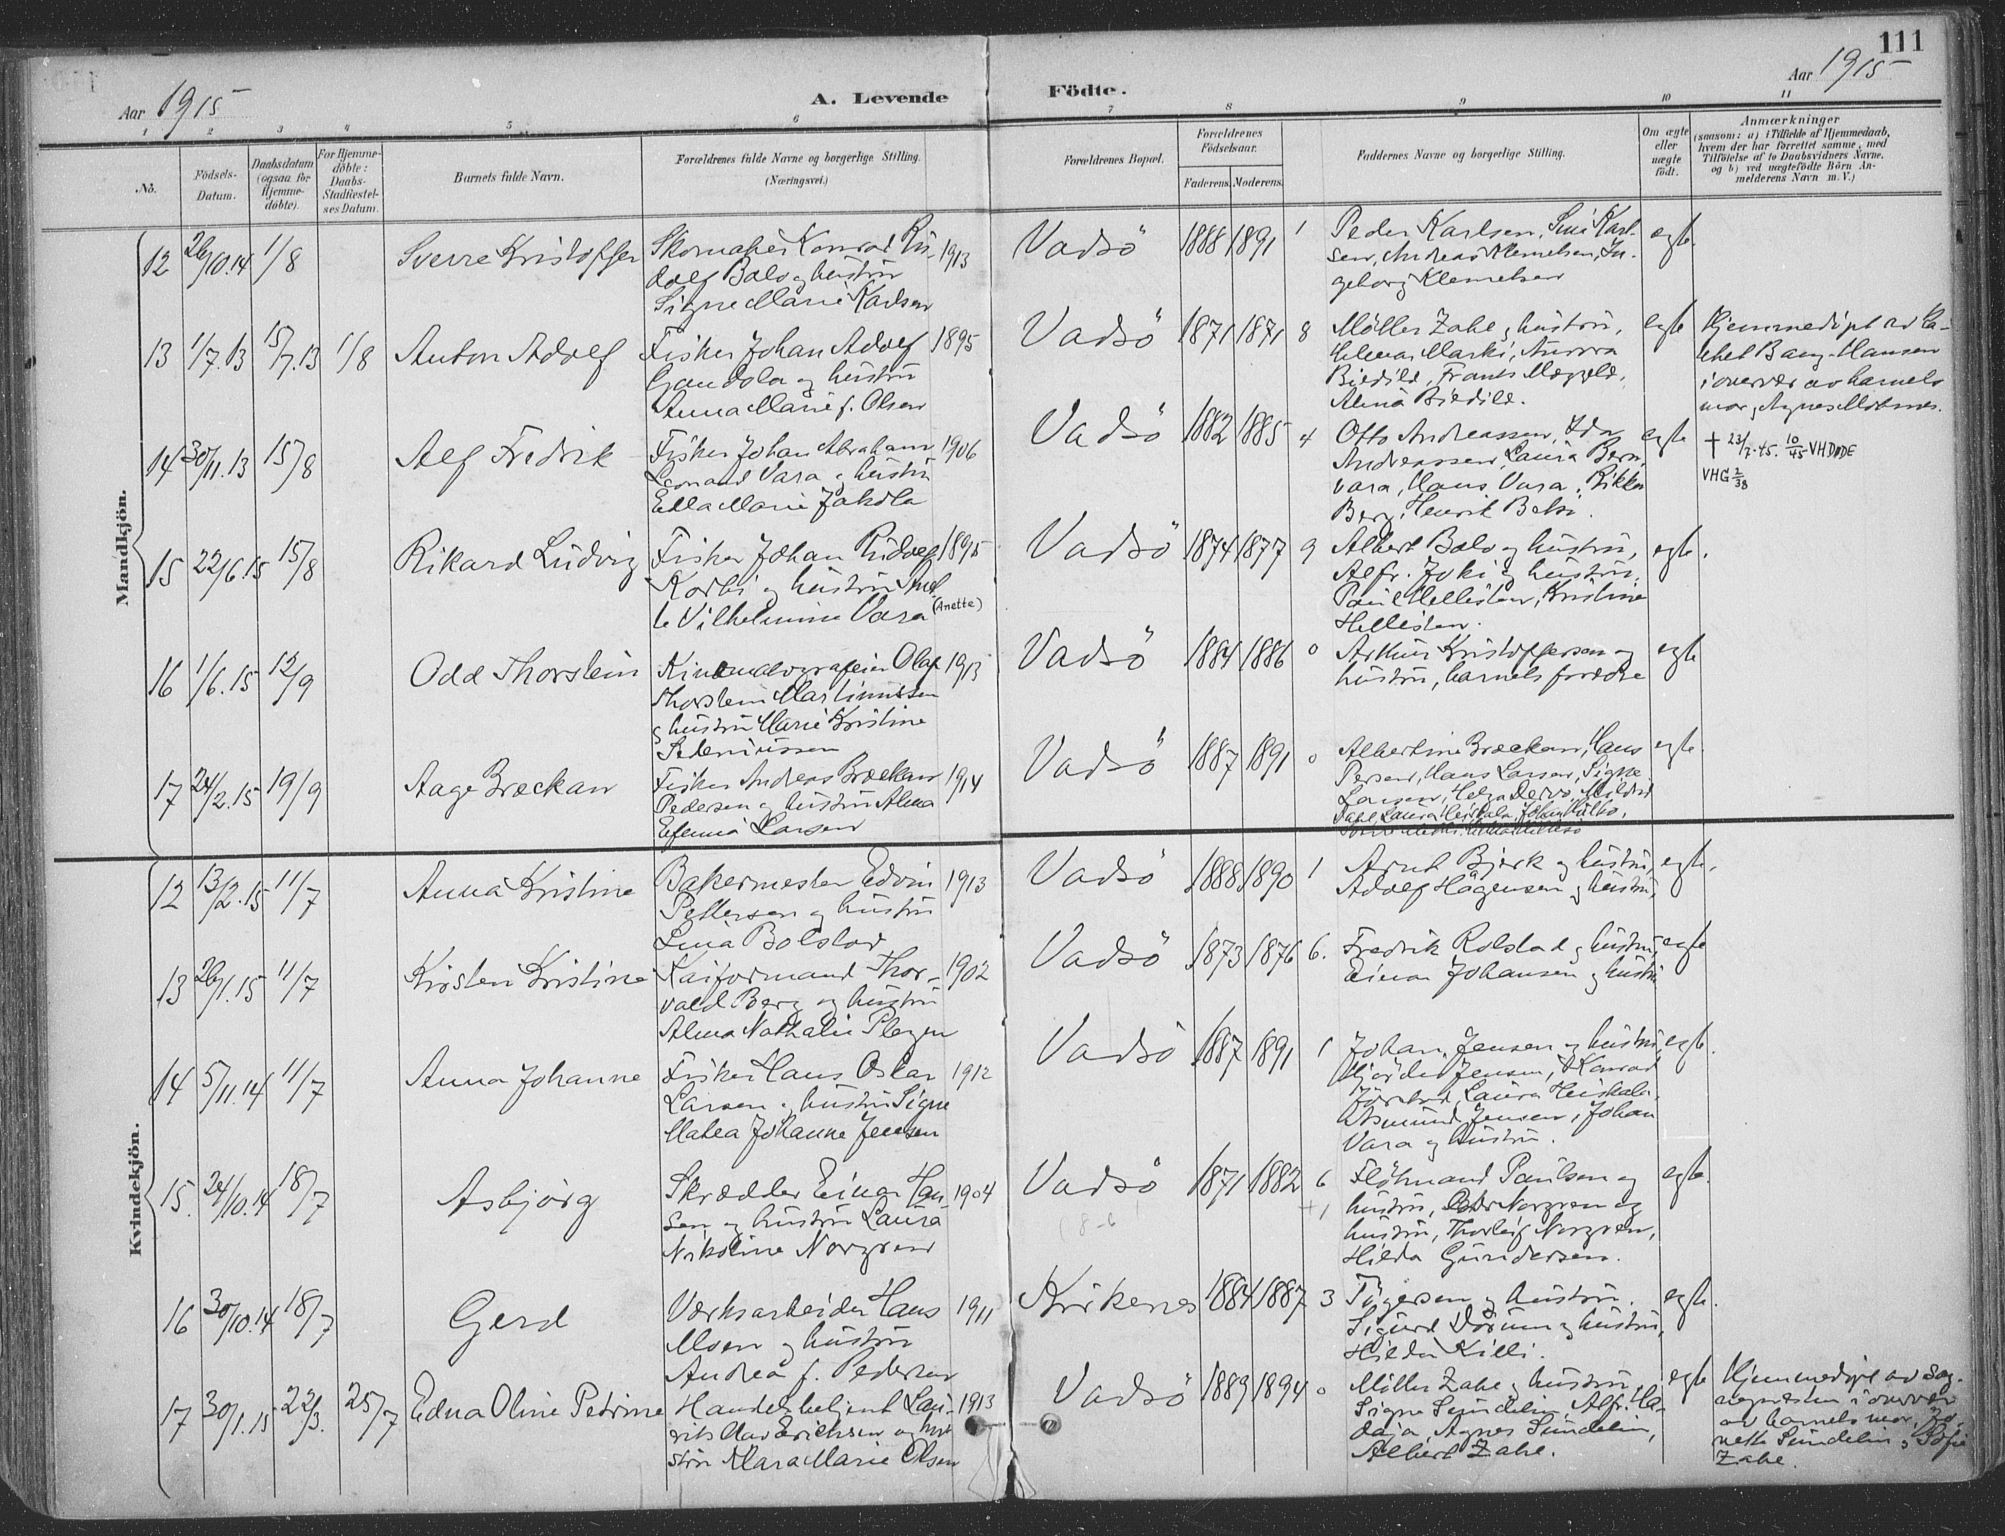 111
Aar 1915
A. Levende Födte.
Aar 1915
1 2 3 4 5 6 7 8 9 10 11
No.
Födsels-Datum.
Daabsdatum (ogsaa for Hjemme-döbte).
For Hjemme-döbte: Daabs-Stadfæstel-ses Datum.
Barnets fulde Navn.
Forældrenes fulde Navne og borgerlige Stilling.
(Næringsvei.)
Forældrenes Bopæl.
Forældrenes Födselsaar.
Faderens. Moderens.
Faddernes Navne og borgerlige Stilling.
Om ægte eller uægte födt.
Anmærkninger
(saasom: a) i Tilfælde af Hjemmedaab,
hvem der har forrettet samme, med
Tilföielse af to Daabsvidners Navne,
og b) ved uægtefödte Börn An-
melderens Navn m. V.)
Mandkjön.
12 26/10.14 1/8 Sverre Kristoffer Skomaker Konrad Ru- 1913 Vadsö 1888 1891 1 Peder Karlsen, Sini Karl- egte.
dolf Balo og hustru
Signe Marie Karlsen
sen, Andreas Klemetsen, In-
geborg Klemetsen
13 1/7.13 15/7.13 1/8 Anton Adolf Fisker Johan Adolf 1895 Vadsö 1871 1871 8 Möller Zahe og hustru, egte Hjemmedöpt av Ka-
Gandola og hustru
Anna Marie f. Olsen
Helena Marki, Aurora
Biedild, Frants
Alma Biedild.
tket Bang-Hansen
i overvær av barnets
mor, Agnes
14 30/11.13 15/8 Alf Fredrik Fisker Johan Abraham 1906 Vadsö 1882 1885 4 Otto Andreassen, Ida egte
Leonard Vara og hustru
Edla Marie Jakola
Andreassen, Laura Bern,
vara, Hans Vara, Rikka
Berg, Henrik Beski.
† 23/7.45. 10/45 VHDØDE
VHG 2/38
15 22/6.15 15/8 Rikard Ludvig Fisker Johan Rudolf 1895 Vadsö 1874 1877 9 Albert Balo og hustru, egte.
Korbi og hustru
te Vilhelmine Vara (Anette)
Alfr. Joki og hustru,
Paul Hellisten, Kristine
Hellisten.
16 1/6.15 12/9 Odd Thorstein Olaf 1913 Vadsö 1884 1886 0 Arthur Kristoffersen og egte
Thorstein Martinussen
og hustru Marie Kristine
hustru, barnets forældre
17 24/2.15 19/9 Aage Bræckan Fisker Andreas Bræckan 1914 Vadsö 1887 1891 0 Albertine Bræckan, Hans egte.
Pedersen og hustru Alma
Larsen
Persen, Hans Larsen, Signe
Larsen, Helga
Dahl, Laura Heiskala, Johan
Kvindekjön.
12 13/2.15 11/7 Anna Kristine Bakermester Edvin 1913 Vadsö 1888 1890 1 Arnt Bjerk og hustru, egte.
Pettersen og hustru
Lina Bolstad
Adolf Hågensen og hustru,
13 26/1.15 11/7 Kirsten Kristine Kaiformand Thor- 1902 Vadsö 1873 1876 6. Fredrik Rolstad og hustru, egte
vald Berg og hustru
Alma Nathalie Plezner
Einar Johansen og hustru
14 5/11.14 11/7 Anna Johanne Fisker Hans Oskar 1912 Vadsö 1887 1891 1 Johan Jensen og hustru, egte.
Larsen og hustru Signe
Matea Johanne Jensen
Hjördis Jensen, Konrad
Jörstad, Laura Heiskala,
Asmund Jensen, Johan
Vara og hustru.
15. 24/10.14 18/7 Asbjörg Skrædder Einar Han- 1904 Vadsö 1871 1882 6 Flöhmand Paulsen og egte.
sen og hustru Laura
Nikoline Norgren
hustru, Norgren og
hustru, Thorleif Norgren,
Hilda Gundersen.
16 30/10.14 18/7 Gerd Værksarbeider Hans 1911 Kirkenes 1884 1887 3 Tögersen og hustru. egte.
Moen og hustru
Andrea f. Pedersen
Sigurd Dörum og hustru,
Hilda Killi.
17 30/1.15 22/3. 25/7 Edna Oline Petrine Handelsbetjent Lau- 1913 Vadsö 1889 1894 0 Möller Zahe og hustru, egte Hjemmedöpt av sog-
rits Erichsen og hu-
stru Klara Marie Olsen
Signe Sundelin, Alfr. Ha-
daja, Agnes Sundelin,
Albert Zahe.
nepresten i overvær
av barnets mor,
nette Sundelin, Sofie
Zahe.